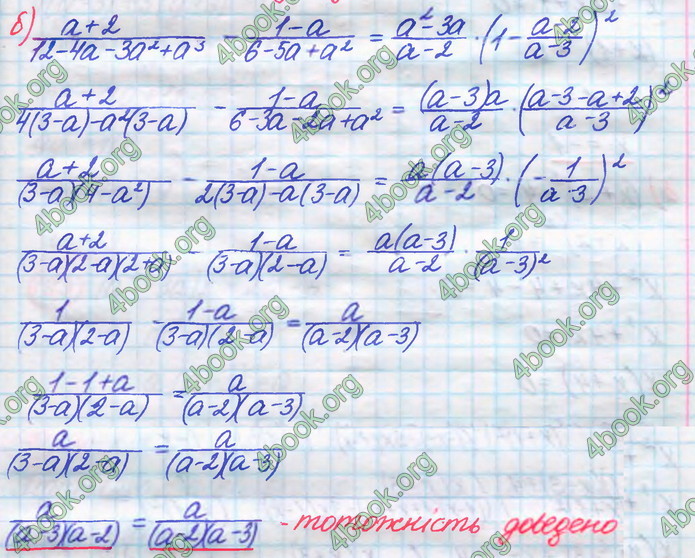 б) (a+2)/(12-4a-3a²+a³) - (1-a)/(6-5a+a²) = (a²-3a)/(a-2) · (1 - (a-2)/(a-3))²
(a+2)/(4(3-a)-a²(3-a)) - (1-a)/(6-3a-2a+a²) = ((a-3)a)/(a-2) · ((a-3-a+2)/(a-3))²
(a+2)/((3-a)(4-a²)) - (1-a)/(2(3-a)-a(3-a)) = (a(a-3))/(a-2) · (-1/(a-3))²
(a+2)/((3-a)(2-a)(2+a)) - (1-a)/((3-a)(2-a)) = (a(a-3))/(a-2) · 1/(a-3)²
1/((3-a)(2-a)) - (1-a)/((3-a)(2-a)) = a/((a-2)(a-3))
(1-1+a)/((3-a)(2-a)) = a/((a-2)(a-3))
a/((3-a)(2-a)) = a/((a-2)(a-3))
a/((a-3)(a-2)) = a/((a-2)(a-3)) - тотожність доведено
4book.org